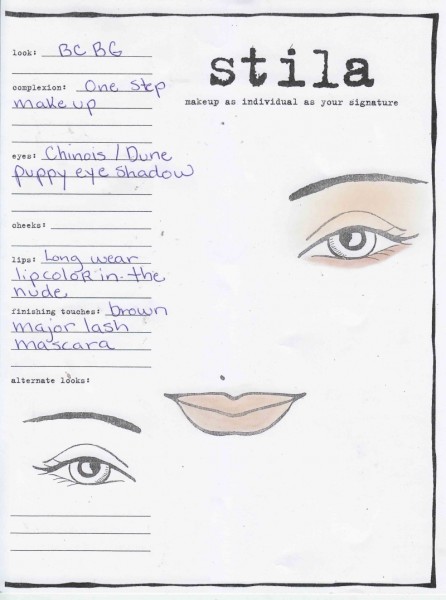 look: BCBG
complexion: One Step
makeup
eyes: Chinois / Dune
puppy eye shadow
cheeks:
lips: Long wear
lipcolor in the
nude
finishing touches: brown
major lash
mascara
alternate looks:
stila
makeup as individual as your signature